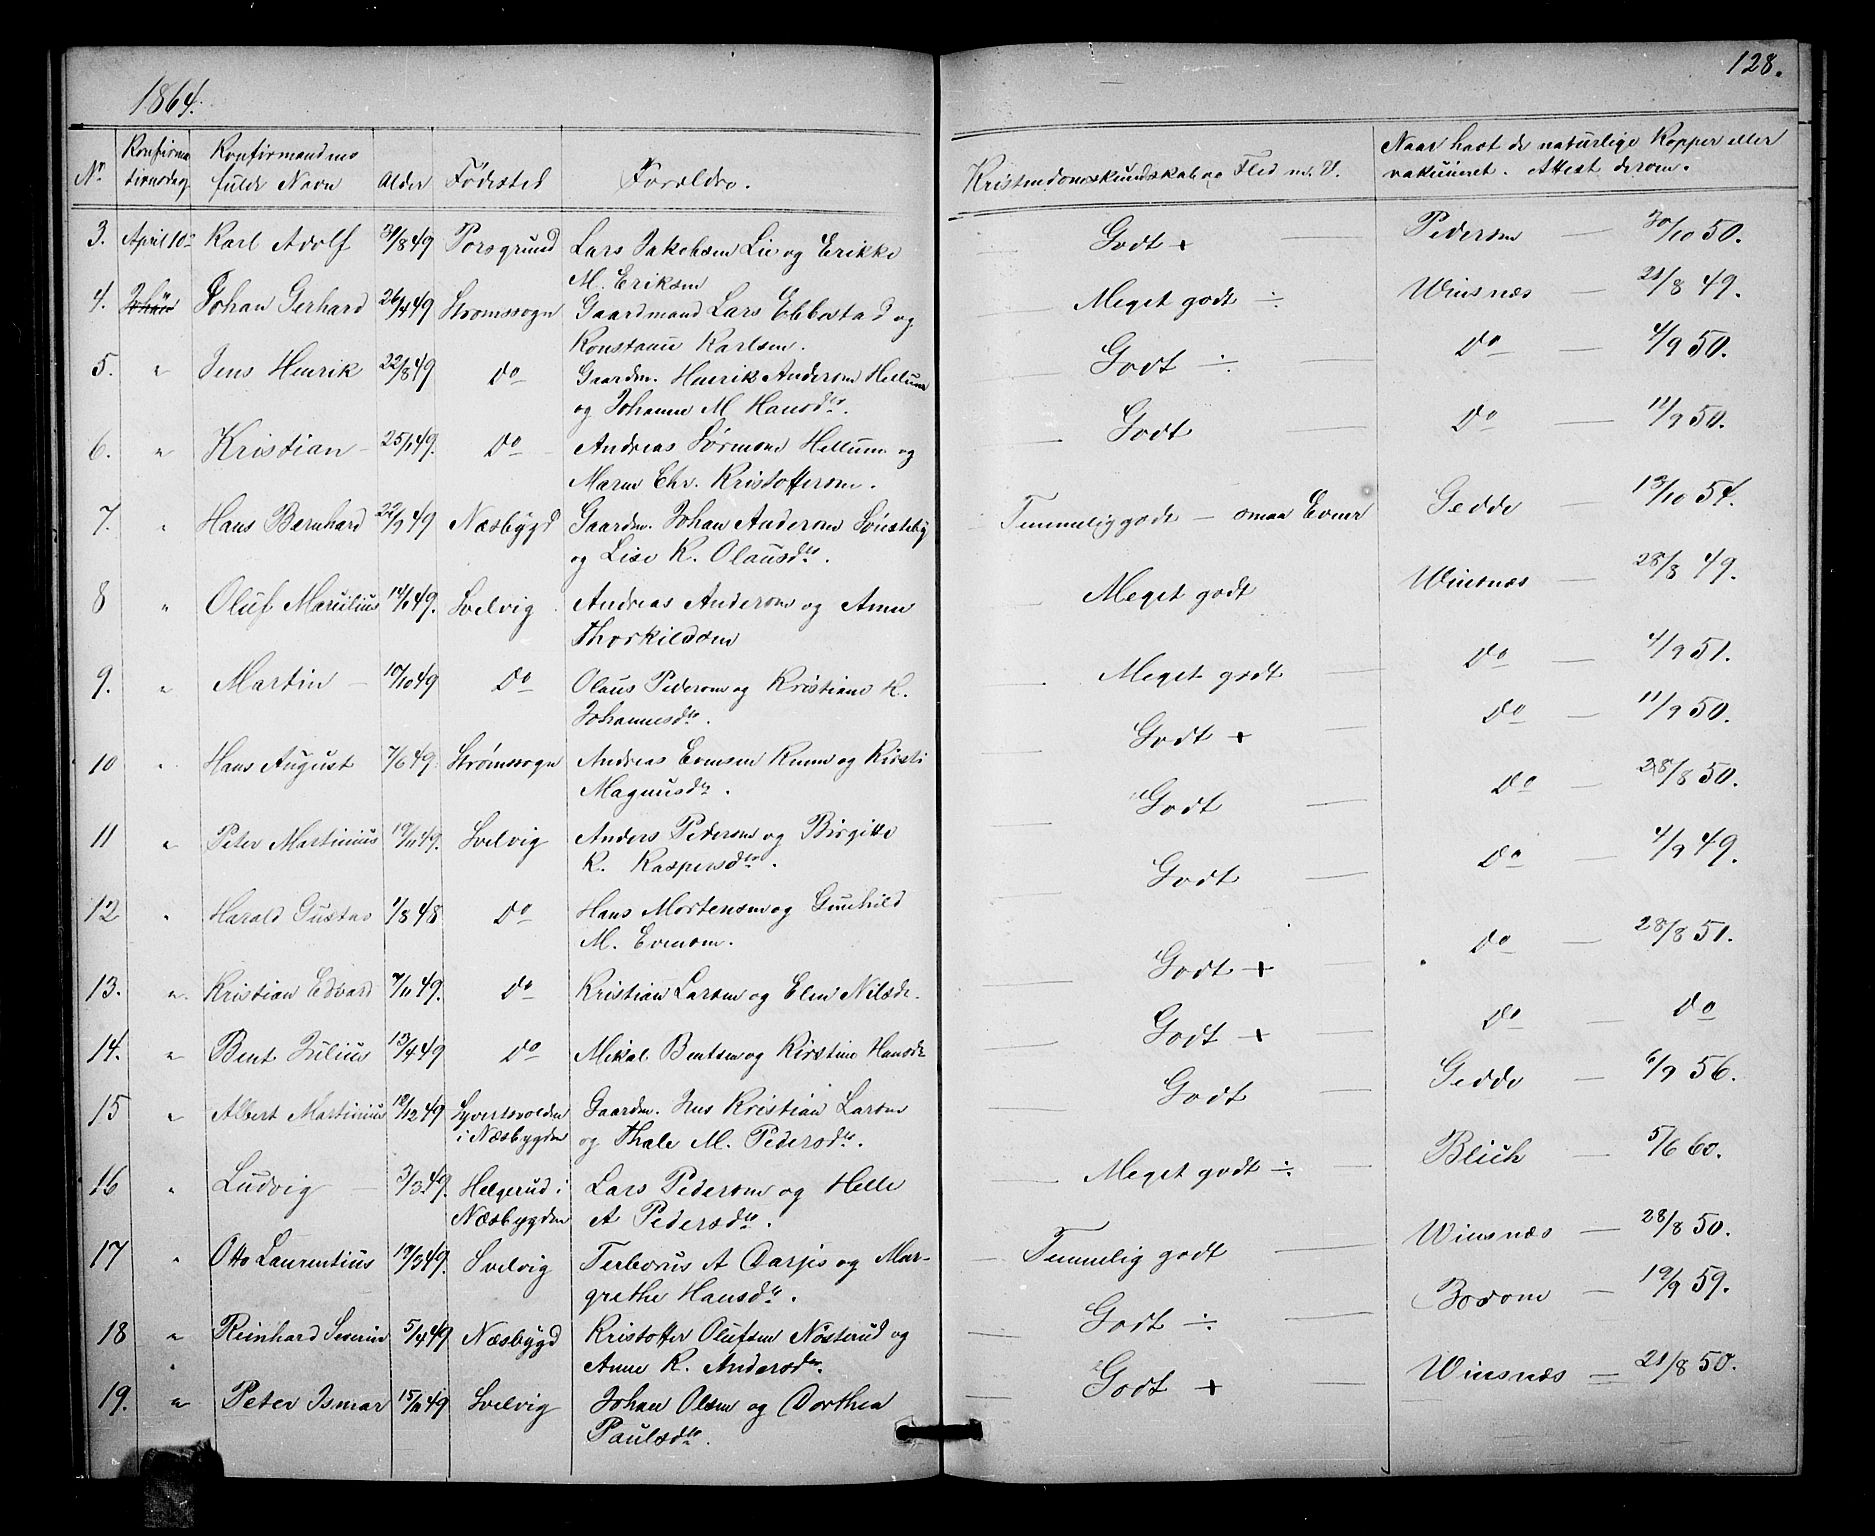 1864.
128.
No. Konfirmationsdag Konfirmandens fulde Navn Alder Fødested Forældre. Kristendomskundskab og Flid m. V. Naar havt de naturlige Kopper eller vakcineret. Attest derom.
3. April 10de Karl Adolf 31/8 49 Porsgrund Lars Jakobsen Lie og Erikke Godt + — Pedersen — 30/10 50.
M. Eriksen
4. Johan Johan Gerhard 26/4 49 Strømssogn Gaardmand Lars Ebbestad og Meget godt ÷ Winsnæs — 21/8 49.
Konstanse Karlsen.
5. " Jens Henrik 22/8 49 do Gaardm. Henrik Andersen Hellum Godt ÷ do — 4/9 50.
og Johanne M Hansdtr.
6. " Kristian — 25/1 49. do Andreas Sørensen Hellum og Godt — do — 11/9 50.
Maren Chr. Kristoffersen.
7. " Hans Bernhard 22/9 49 Næsbygd Gaardm. Johan Andersen Temmelig godt — smaa Evner Gedde — 13/10 54.
og Lise K. Olausdtr.
8 " Oluf Marcilius 14/1 49. Svelvig Andreas Andersen og Anne Meget godt Winsnæs — 28/8 49.
Thorkildsen
9. " Martin — 10/10 49 do Olaus Pedersen og Kristiane K. Meget godt — do — 4/9 51.
Johannesdtr.
10 " Hans August 7/6 49. Strømssogn Andreas Evensen og Kirsti Godt + do — 11/9 50.
Magnusdtr.
11 " Peter Martinius 19/11 49. Svelvig Anders Pedersen og Birgitte Godt — do — 28/8 50.
K. Kaspersdtr.
12 " Harald Gustav 1/8 48 do Hans Mortensen og Gunhild Godt — do — 4/9 49.
M. Evensen.
13. " Kristian Edvard 7/11 49. do Kristian Larsen og Elen Nilsdtr. Godt + — do — 28/8 51.
14. " Bent Julius 13/4 49 do Mikal Bentsen og Kirstine Hansdtr Godt + — do — do
15 " Albert Martinius 12/12 49 Syvertsvolden Gaardm. Jens Kristian Larsen Godt — Gedde — 6/9 56.
i Næsbygden og Thale M. Pedersdtr.
16 " Ludvig — 3/3 49. Helgerud i Lars Pedersen og Helle Meget godt ÷ — Blich — 5/6 60.
Næsbygden A Pedersdtr.
17 " Otto Laurentius 19/3 49. Svelvig Terborus A Darjes og Mar- Temmelig godt — Winsnæs — 28/8 50.
grethe Hansdtr.
18 " Reinhard Severin 5/4 49 Næsbygd Kristoffer Olufsen Nøsterud og Godt ÷ — — 19/9 59.
" Anne K. Andersdtr.
19. " Peter Ismar 15/11 49 Svelvig Johan Olsen og Dorthea Godt + — Winsnæs — 21/8 50.
Paulsdtr.